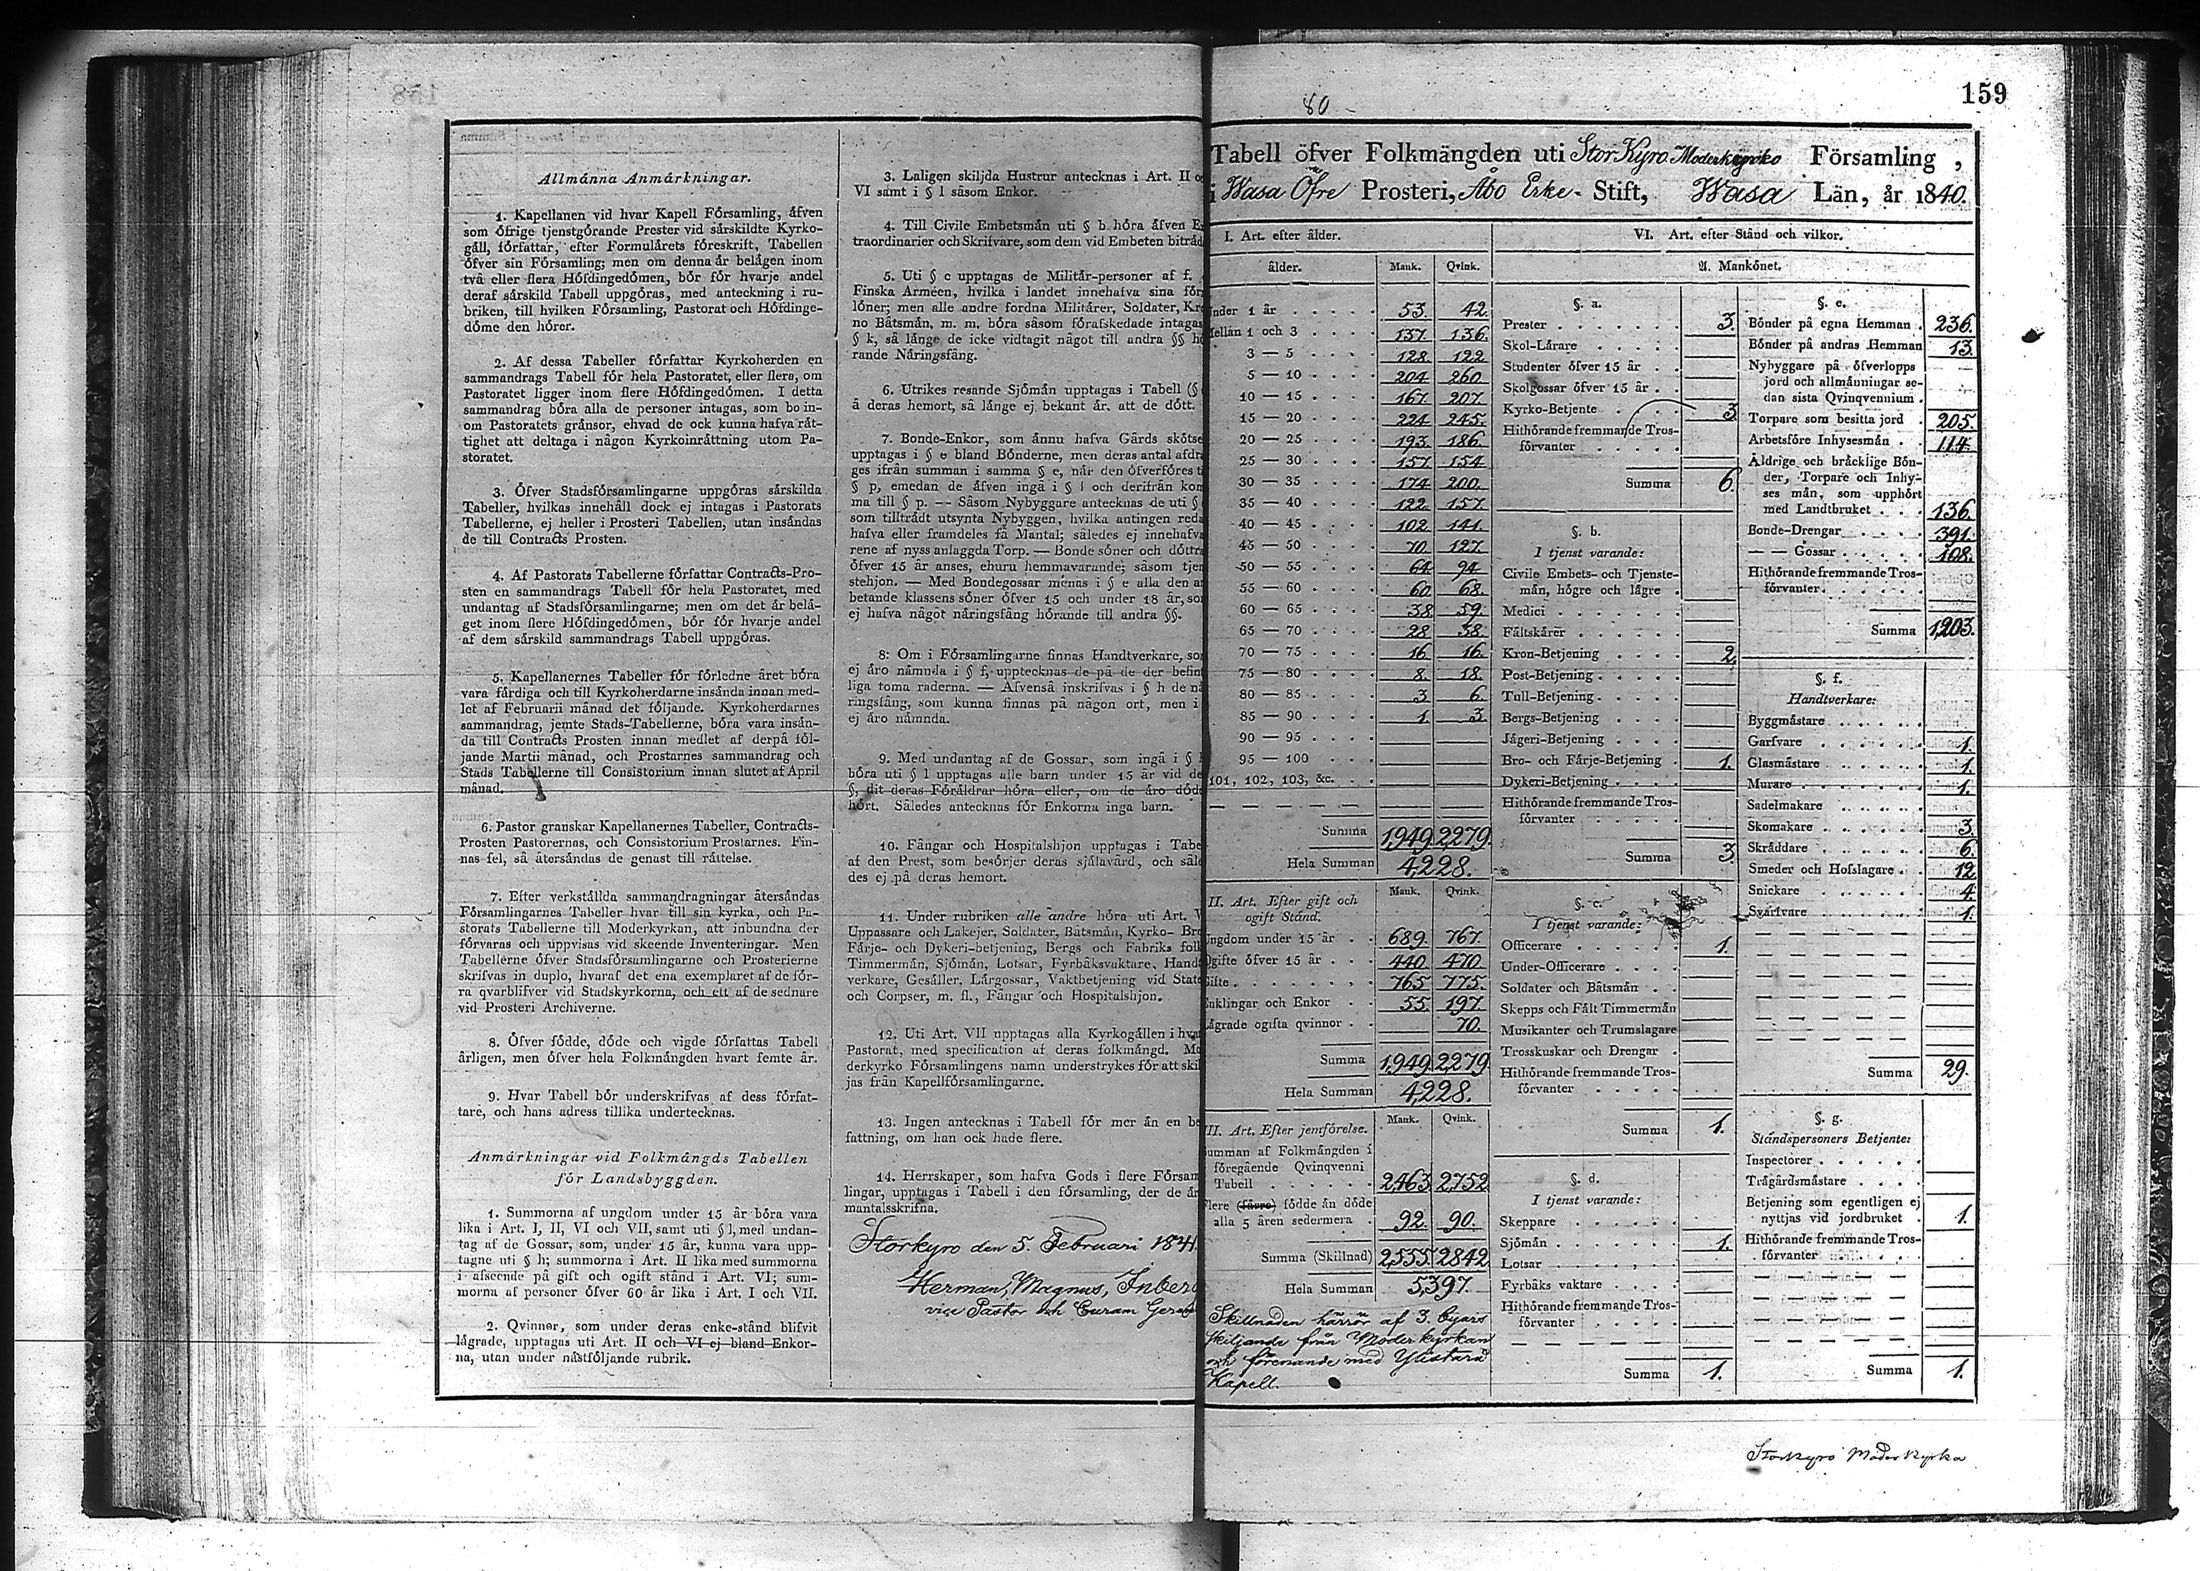 Allmånna Anmårkningar.
1. Kapellanen vid hvar Kapell Församling, åfven
som öfrige tjenstgörande Prester vid sårskildte Kyrko-
gåll, författar, efter Formulårets föreskrift, Tabellen
öfver sin Församling; men om denna år belågen inom
två eller flera Höfdingedömen, bör för hvarje andel
deraf sårskild Tabell uppgöras, med anteckning i ru-
briken, till hvilken Församling, Pastorat och Höfdinge-
döme den hörer.
2. Af dessa Tabeller författar Kyrkoherden en
sammandrags Tabell för hela Pastoratet, eller flera, om
Pastoratet ligger inom flere Höfdingedömen. I detta
sammandrag böra alla de personer intagas, som bo in-
om Pastoratets grånsor, ehvad de ock kunna hafva rått-
tighet att deltaga i någon Kyrkoinråttning utom Pa-
storatet.
3. Öfver Stadsförsamlingarne uppgöras sårskilda
Tabeller, hvilkas innehåll dock ej intagas i Pastorats
Tabellerne, ej heller i Prosteri Tabellen, utan insåndas
de till Contracts Prosten.
4. Af Pastorats Tabellerne författar Contracts-Pro-
sten en sammandrags Tabell för hela Pastoratet, med
undantag af Stadsförsamlingarne; men om det år belå-
get inom flere Höfdingedömen, bör för hvarje andel
af dem sårskild sammandrags Tabell uppgöras.
5. Kapellanernes Tabeller för förledne året böra
vara fårdiga och till Kyrkoherdarne insånda innan med-
let af Februarii månad det följande. Kyrkoherdarnes
sammandrag, jemte Stads-Tabellerne, böra vara insån-
da till Contracts Prosten innan medlet af derpå föl-
jande Martii månad, och Prostarnes sammandrag och
Stads Tabellerne till Consistorium innan slutet af April
månad.
6. Pastor granskar Kapellanernes Tabeller, Contracts-
Prosten Pastorernas, och Consistorium Prostarnes. Fin-
nas fel, så återsåndas de genast till råttelse.
7. Efter verkstållda sammandragningar återsåndas
Församlingarnes Tabeller hvar till sin kyrka, och Pa-
storats Tabellerne till Moderkyrkan, att inbundna der
förvaras och uppvisas vid skeende Inventeringar. Men
Tabellerne öfver Stadsförsamlingarne och Prosterierne
skrifvas in duplo, hvaraf det ena exemplaret af de för-
ra qvarblifver vid Stadskyrkorna, och ett af de sednare
vid Prosteri Archiverne.
8. Öfver födde, döde och vigde författas Tabell
årligen, men öfver hela Folkmångden hvart femte år.
9. Hvar Tabell bör underskrifvas af dess förfat-
tare, och hans adress tillika undertecknas.
Anmårkningar vid Folkmångds Tabellen
för Landsbyggden.
1. Summorna af ungdom under 15 år böra vara
lika i Art. I, II, VI och VII, samt uti § l, med undan-
tag af de Gossar, som, under 15 år, kunna vara upp-
tagne uti § h; summorna i Art. II lika med summorna
i afseende på gift och ogift stånd i Art. VI; sum-
morna af personer öfver 60 år lika i Art. I och VII.
2. Qvinnor, som under deras enke-stånd blifvit
lågrade, upptagas uti Art. II och VI ej bland Enkor-
na, utan under nåstföljande rubrik.
3. Laligen skiljda Hustrur antecknas i Art. II
VI samt i § l såsom Enkor.
4. Till Civile Embetsmån uti § b höra åfven
traordinarier och Skrifvare, som dem vid Embeten
5. Uti § c upptagas de Militår-personer af f.
Finska Arméen, hvilka i landet innehafva sina
löner; men alle andre fordna Militårer, Soldater,
no Båtsmån, m. m. böra såsom förafskedade intagas
§ k, så långe de icke vidtagit något till andra §§
rande Nåringsfång.
6. Utrikes resande Sjömån upptagas i Tabell (§
å deras hemort, så långe ej bekant år, att de dött.
7. Bonde-Enkor, som ånnu hafva Gårds
upptagas i § e bland Bönderne, men deras antal
ges ifrån summan i samma § e, når den öfverföres
§ p, emedan de åfven ingå i § l och derifrån
ma till § p. — Såsom Nybyggare antecknas de uti §
som tilltrådt utsynta Nybyggen, hvilka antingen
hafva eller framdeles få Mantal; således ej
rene af nyss anlaggda Torp. — Bonde söner och
öfver 15 år anses, ehuru hemmavarande; såsom
stehjon. — Med Bondegossar menas i § e alla den
betande klassens söner öfver 15 och under 18 år,
ej hafva något nåringsfång hörande till andra §§.
8: Om i Församlingarne finnas Handtverkare,
ej åro nåmnda i § f, upptecknas de på de der
liga toma raderna. — Åfvenså inskrifvas i § h de
ringsfång, som kunna finnas på någon ort, men i
ej åro nåmnda.
9. Med undantag af de Gossar, som ingå i §
böra uti § l upptagas alle barn under 15 år vid
§, dit deras Föråldrar höra eller, om de åro
hört. Således antecknas för Enkorna inga barn.
10. Fångar och Hospitalshjon upptagas i
af den Prest, som besörjer deras sjålavård, och
des ej på deras hemort.
11. Under rubriken alle andre höra uti Art.
Uppassare och Lakejer, Soldater, Båtsmån, Kyrko-
Fårje- och Dykeri-betjening, Bergs och Fabriks
Timmermån, Sjömån, Lotsar, Fyrbåksvaktare,
verkare, Gesåller, Lårgossar, Vaktbetjening vid
och Corpser, m. fl., Fångar och Hospitalshjon.
12. Uti Art. VII upptagas alla Kyrkogållen i
Pastorat, med specification af deras folkmångd.
derkyrko Församlingens namn understrykes för att
jas från Kapellförsamlingarne.
13. Ingen antecknas i Tabell för mer ån en
fattning, om han ock hade flere.
14. Herrskaper, som hafva Gods i flere
lingar, upptagas i Tabell i den församling, der de
mantalsskrifna.
Storkyro den 5. Februari 1841.
Herman, Magnus, Inberg
vice Pastor och Curam
80
159
Tabell öfver Folkmängden uti StorKyro Moderkyrko Församling,
i Wasa Öfre Prosteri, Åbo Erke- Stift, Wasa Län, år 1840.
I. Art. efter ålder.
ålder. Mank. Qvink.
Under 1 år 53. 42.
Mellan 1 och 3 137. 136.
3 — 5 128. 122
5 — 10 204. 260
10 — 15 167. 207.
15 — 20 224 245.
20 — 25 193. 186.
25 — 30 157. 154
30 — 35 174 200.
35 — 40 122 157.
40 — 45 102 141.
45 — 50 70 127.
50 — 55 64 94.
55 — 60 60 68.
60 — 65 38 59.
65 — 70 28 38.
70 — 75 16 16.
75 — 80 8. 18.
80 — 85 3 6.
85 — 90 1. 3.
90 — 95
95 — 100
101, 102, 103, &c.
Summa 1,949. 2,279.
Hela Summan 4,228.
II. Art. Efter gift och
ogift Stånd.
Mank. Qvink.
Ungdom under 15 år 689. 767.
Ogifte öfver 15 år 440 470.
Gifte 765 775.
Enklingar och Enkor 55. 197.
Lågrade ogifta qvinnor 70.
Summa 1,949. 2,279
Hela Summan 4,228.
III. Art. Efter jemförelse.
Mank. Qvink.
Summan af Folkmångden i
föregående Qvinqvenni
Tabell 2,463. 2752
Flere (fårre) födde ån döde
alla 5 åren sedermera 92. 90.
Summa (Skillnad) 2,555. 2842
Hela Summan 5,397.
Skillnaden härrör af 3. Byars
skiljande från Moderkyrkan
och förenande med Ylistaro
Kapell.
VI. Art. efter Stånd och vilkor.
A. Mankönet.
§. a.
Prester 3.
Skol-Lårare
Studenter öfver 15 år
Skolgossar öfver 15 år
Kyrko-Betjente 3.
Hithörande fremmande Tros-
förvanter
Summa 6.
§. b.
I tjenst varande:
Civile Embets- och Tjenste-
mån, högre och lågre
Medici
Fåltskårer
Kron-Betjening 2.
Post-Betjening
Tull-Betjening
Bergs-Betjening
Jågeri-Betjening
Bro- och Fårje-Betjening 1.
Dykeri-Betjening
Hithörande fremmande Tros-
förvanter
Summa 3.
§. c.
I tjenst varande:
Officerare 1.
Under-Officerare
Soldater och Båtsmån
Skepps och Fålt Timmermån
Musikanter och Trumslagare
Trosskuskar och Drengar
Hithörande fremmande Tros-
förvanter
Summa 1.
§. d.
I tjenst varande:
Skeppare
Sjömån 1.
Lotsar
Fyrbåks vaktare
Hithörande fremmande Tros-
förvanter
Summa 1.
§. e.
Bönder på egna Hemman 236.
Bönder på andras Hemman 13.
Nybyggare på öfverlopps
jord och allmånningar se-
dan sista Qvinqvennium
Torpare som besitta jord 205.
Arbetsföre Inhysesmån 114.
Åldrige och bråcklige Bön-
der, Torpare och Inhy-
ses mån, som upphört
med Landtbruket 136.
Bonde-Drengar 391.
— — Gossar 108.
Hithörande fremmande Tros-
förvanter
Summa 1,203.
§. f.
Handtverkare:
Byggmåstare
Garfvare 1.
Glasmåstare 1.
Murare 1.
Sadelmakare
Skomakare 3.
Skråddare 6.
Smeder och Hofslagare 12.
Snickare 4.
Svarfvare 1.
Summa 29.
§. g.
Ståndspersoners Betjente:
Inspectörer
Trågårdsmåstare
Betjening som egentligen ej
nyttjas vid jordbruket 1.
Hithörande fremmande Tros-
förvanter
Summa 1.
Storkyro Moder Kyrka